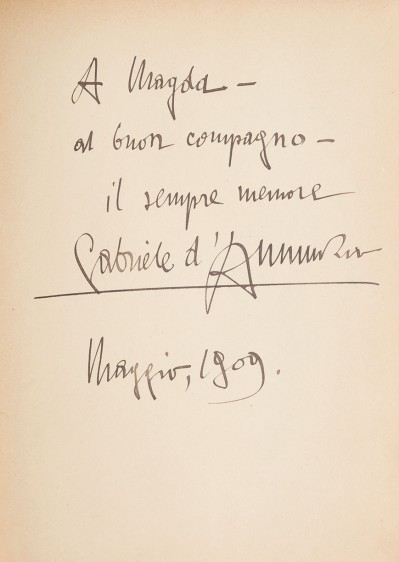 A Magda –
al buon compagno –
il sempre memore
Gabriele d'Annunzio
Maggio, 1909.